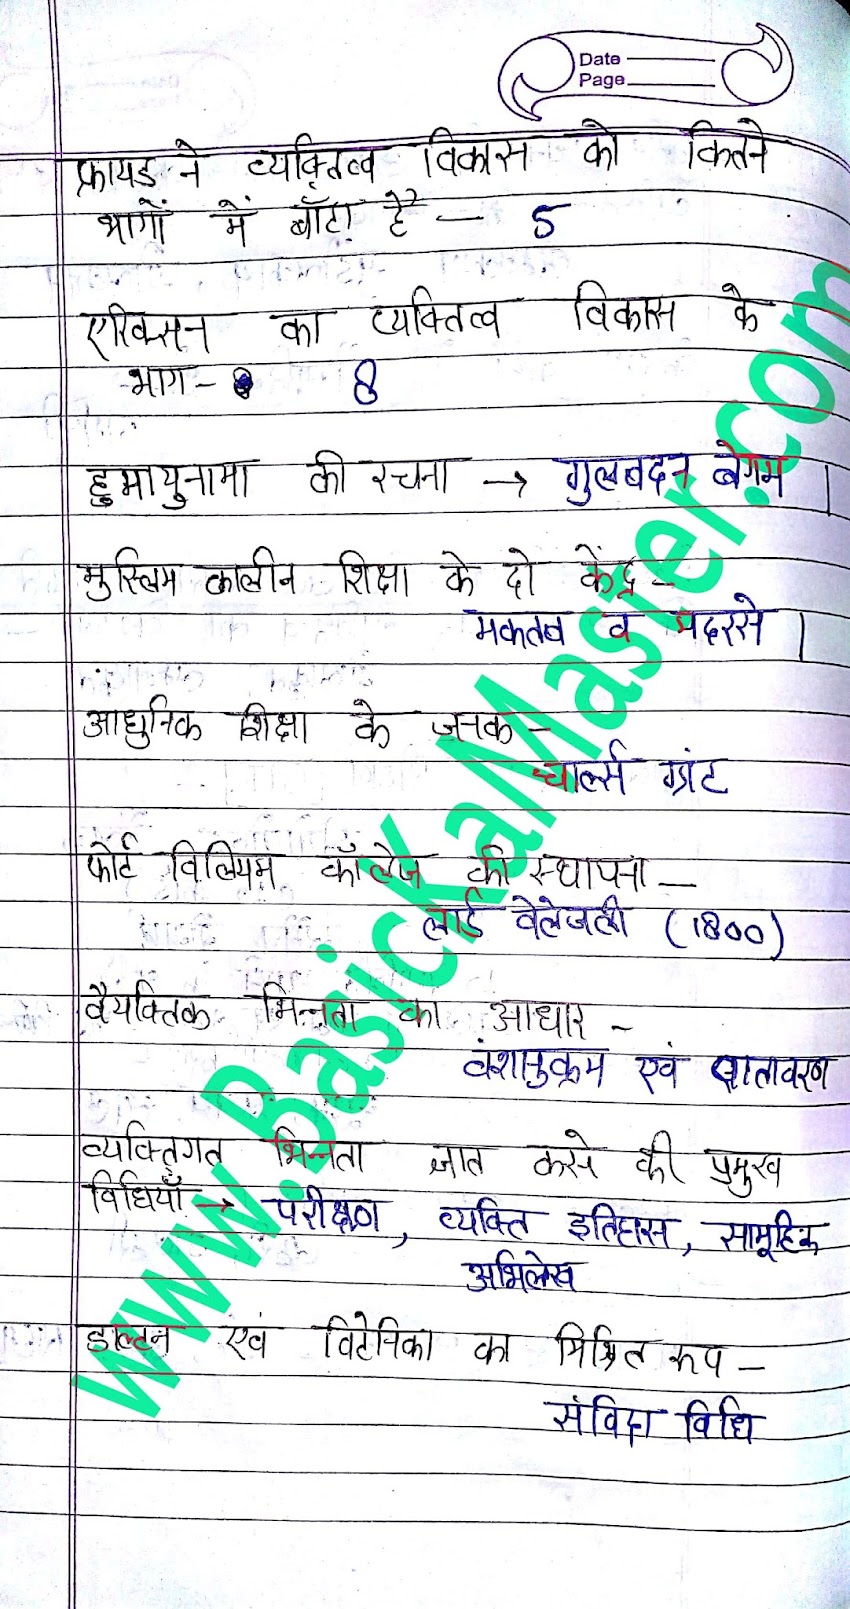 Date
Page
फ्रायड ने व्यक्तित्व विकास को कितने
भागों में बाँटा है - 5
एरिक्सन का व्यक्तित्व विकास के
भाग - 8
हुमायुनामा की रचना → गुलबदन बेगम |
मुस्लिम कालीन शिक्षा के दो केंद्र -
मकतब व मदरसे |
आधुनिक शिक्षा के जनक -
चार्ल्स ग्रांट
फोर्ट विलियम कॉलेज की स्थापना -
लार्ड वेलेजली (1800)
वैयक्तिक भिन्नता का आधार -
वंशानुक्रम एवं वातावरण
व्यक्तिगत भिन्नता ज्ञात करने की प्रमुख
विधियाँ → परीक्षण, व्यक्ति इतिहास, सामूहिक
अभिलेख
डाल्टन एवं विटेनिका का मिश्रित रूप -
संविदा विधि
www.BasicKaMaster.com